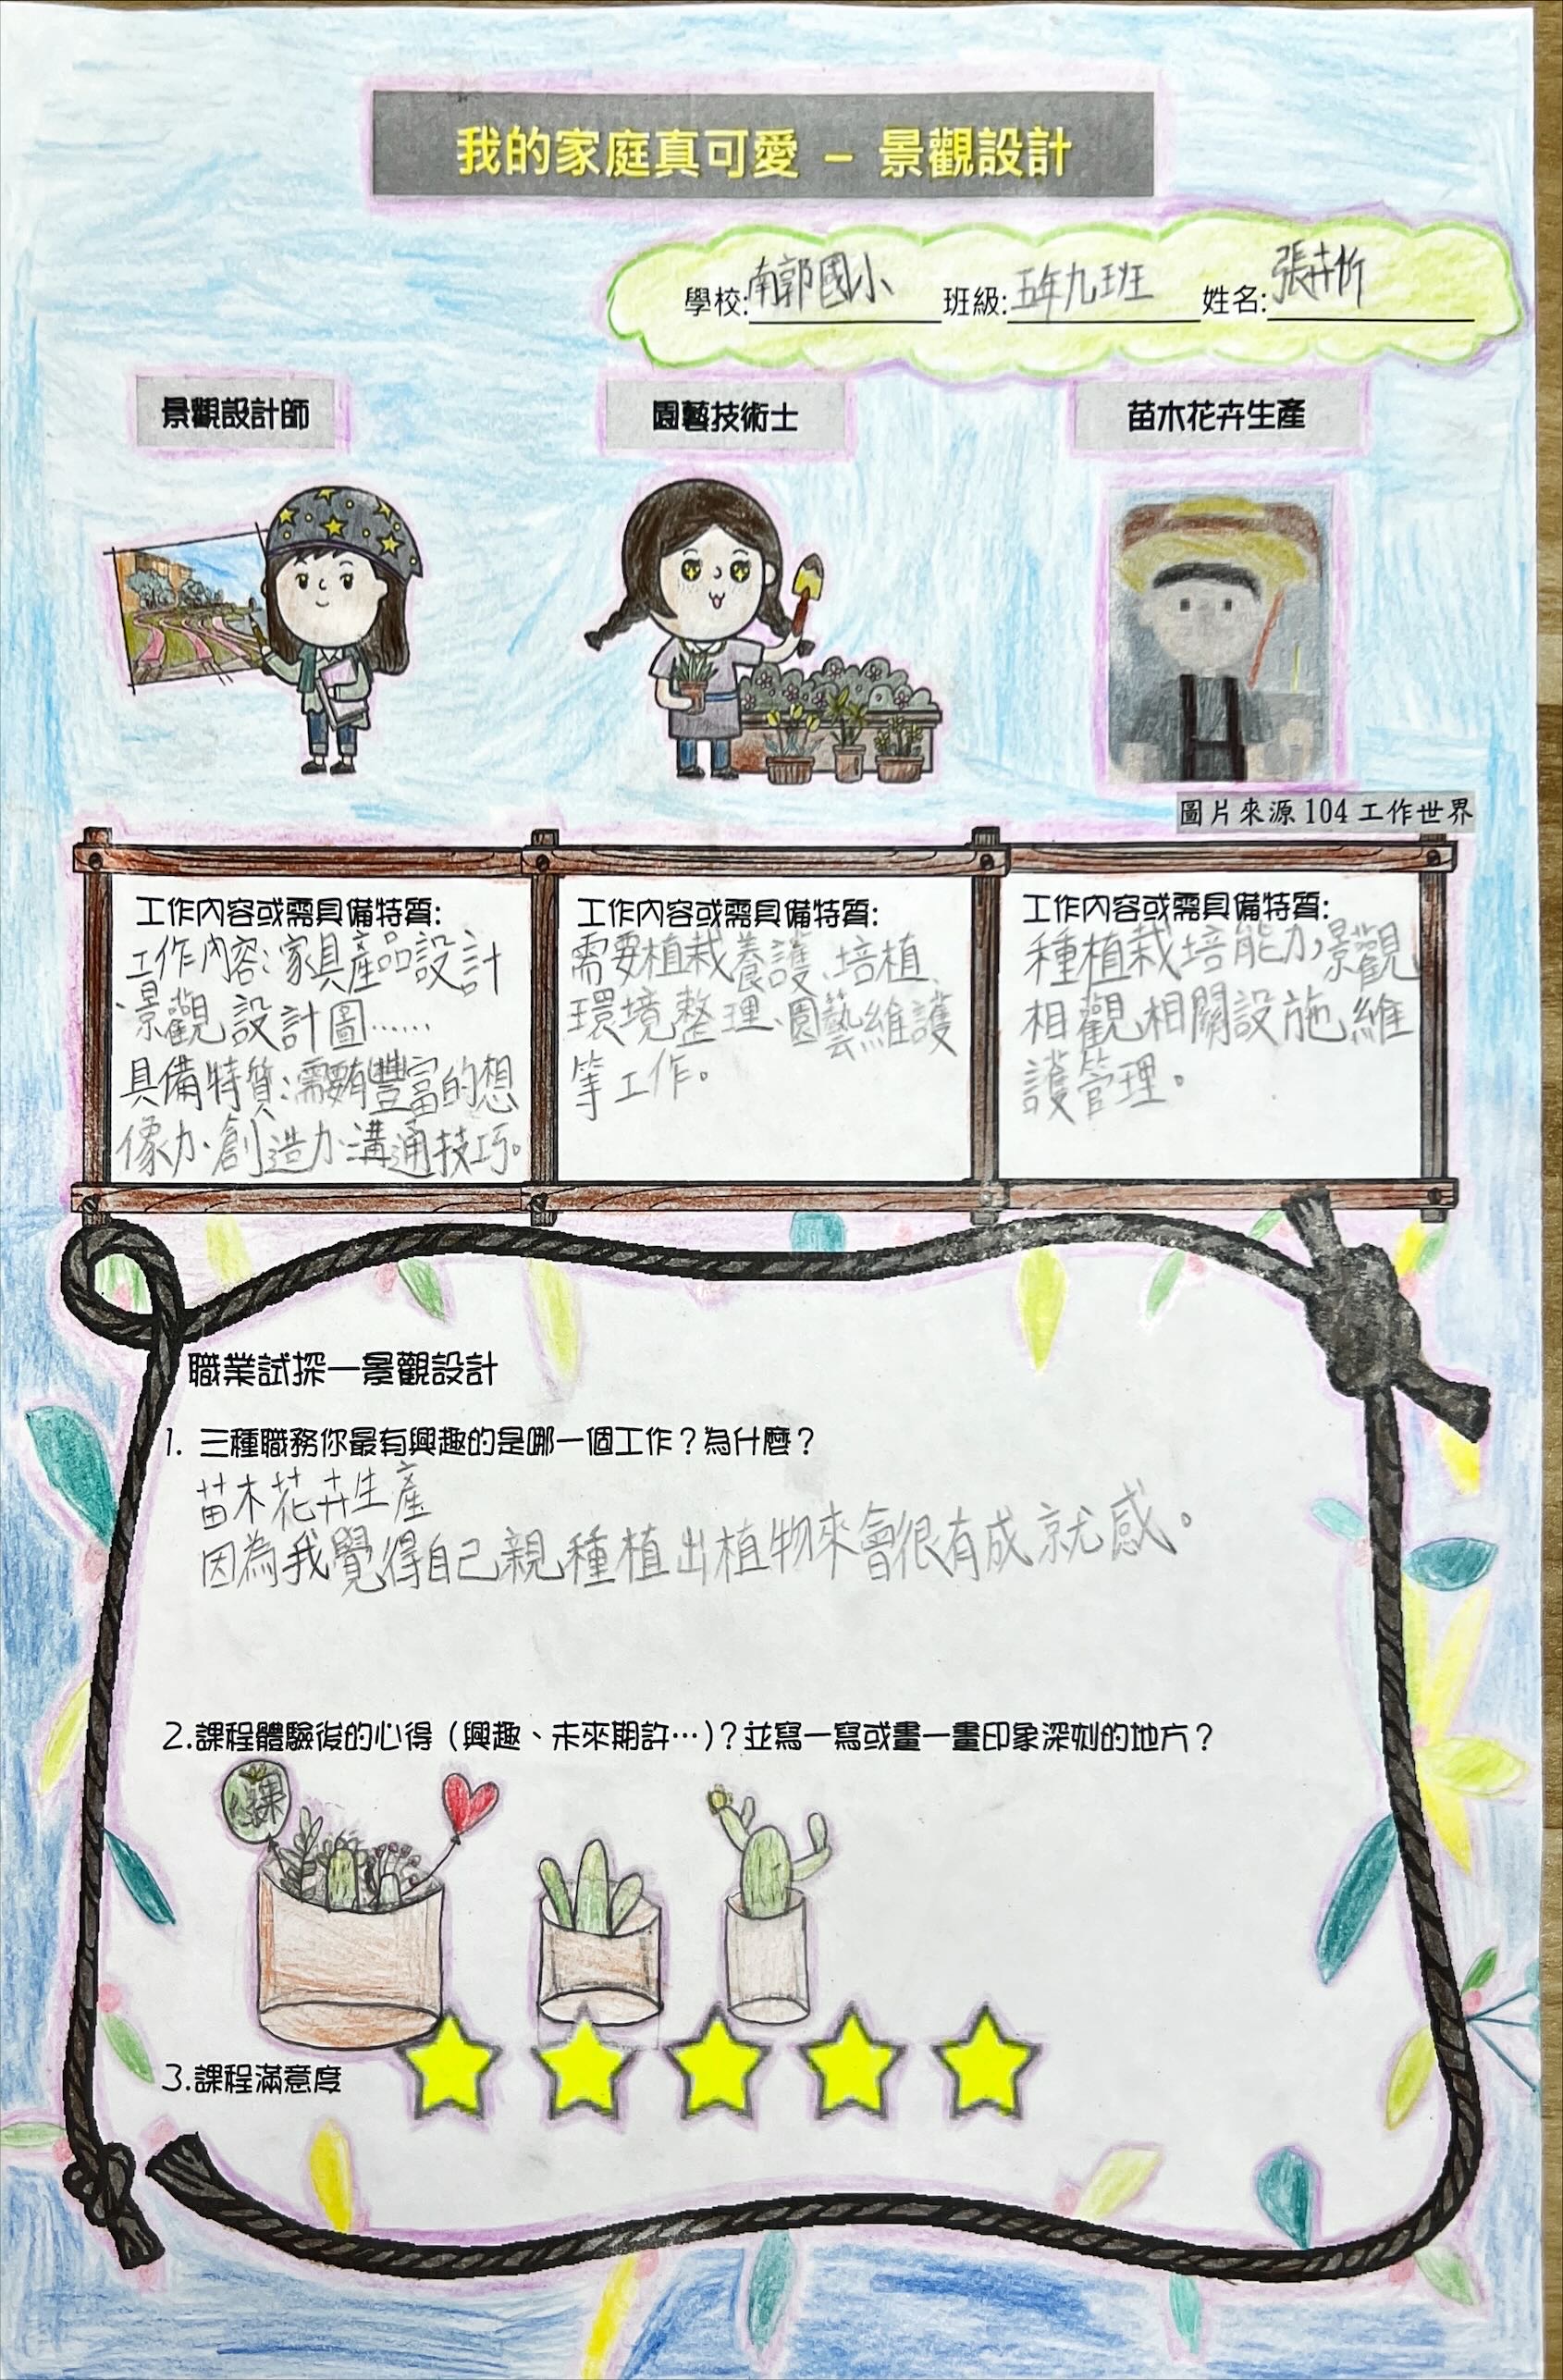 我的家庭真可愛 – 景觀設計
學校:南郭國小 班級:五年九班 姓名:張卉忻
景觀設計師
園藝技術士
苗木花卉生產
圖片來源104工作世界
工作內容或需具備特質:
工作內容:家具產品設計
、景觀設計圖……
具備特質:需要有豐富的想
像力、創造力、溝通技巧。
工作內容或需具備特質:
需要植栽養護、培植、
環境整理、園藝維護
等工作。
工作內容或需具備特質:
種植栽培能力,景觀
相觀相關設施維
護管理。
職業試探—景觀設計
1. 三種職務你最有興趣的是哪一個工作？為什麼？
苗木花卉生產
因為我覺得自己親種植出植物來會很有成就感。
2.課程體驗後的心得（興趣、未來期許…）？並寫一寫或畫一畫印象深刻的地方？
3.課程滿意度